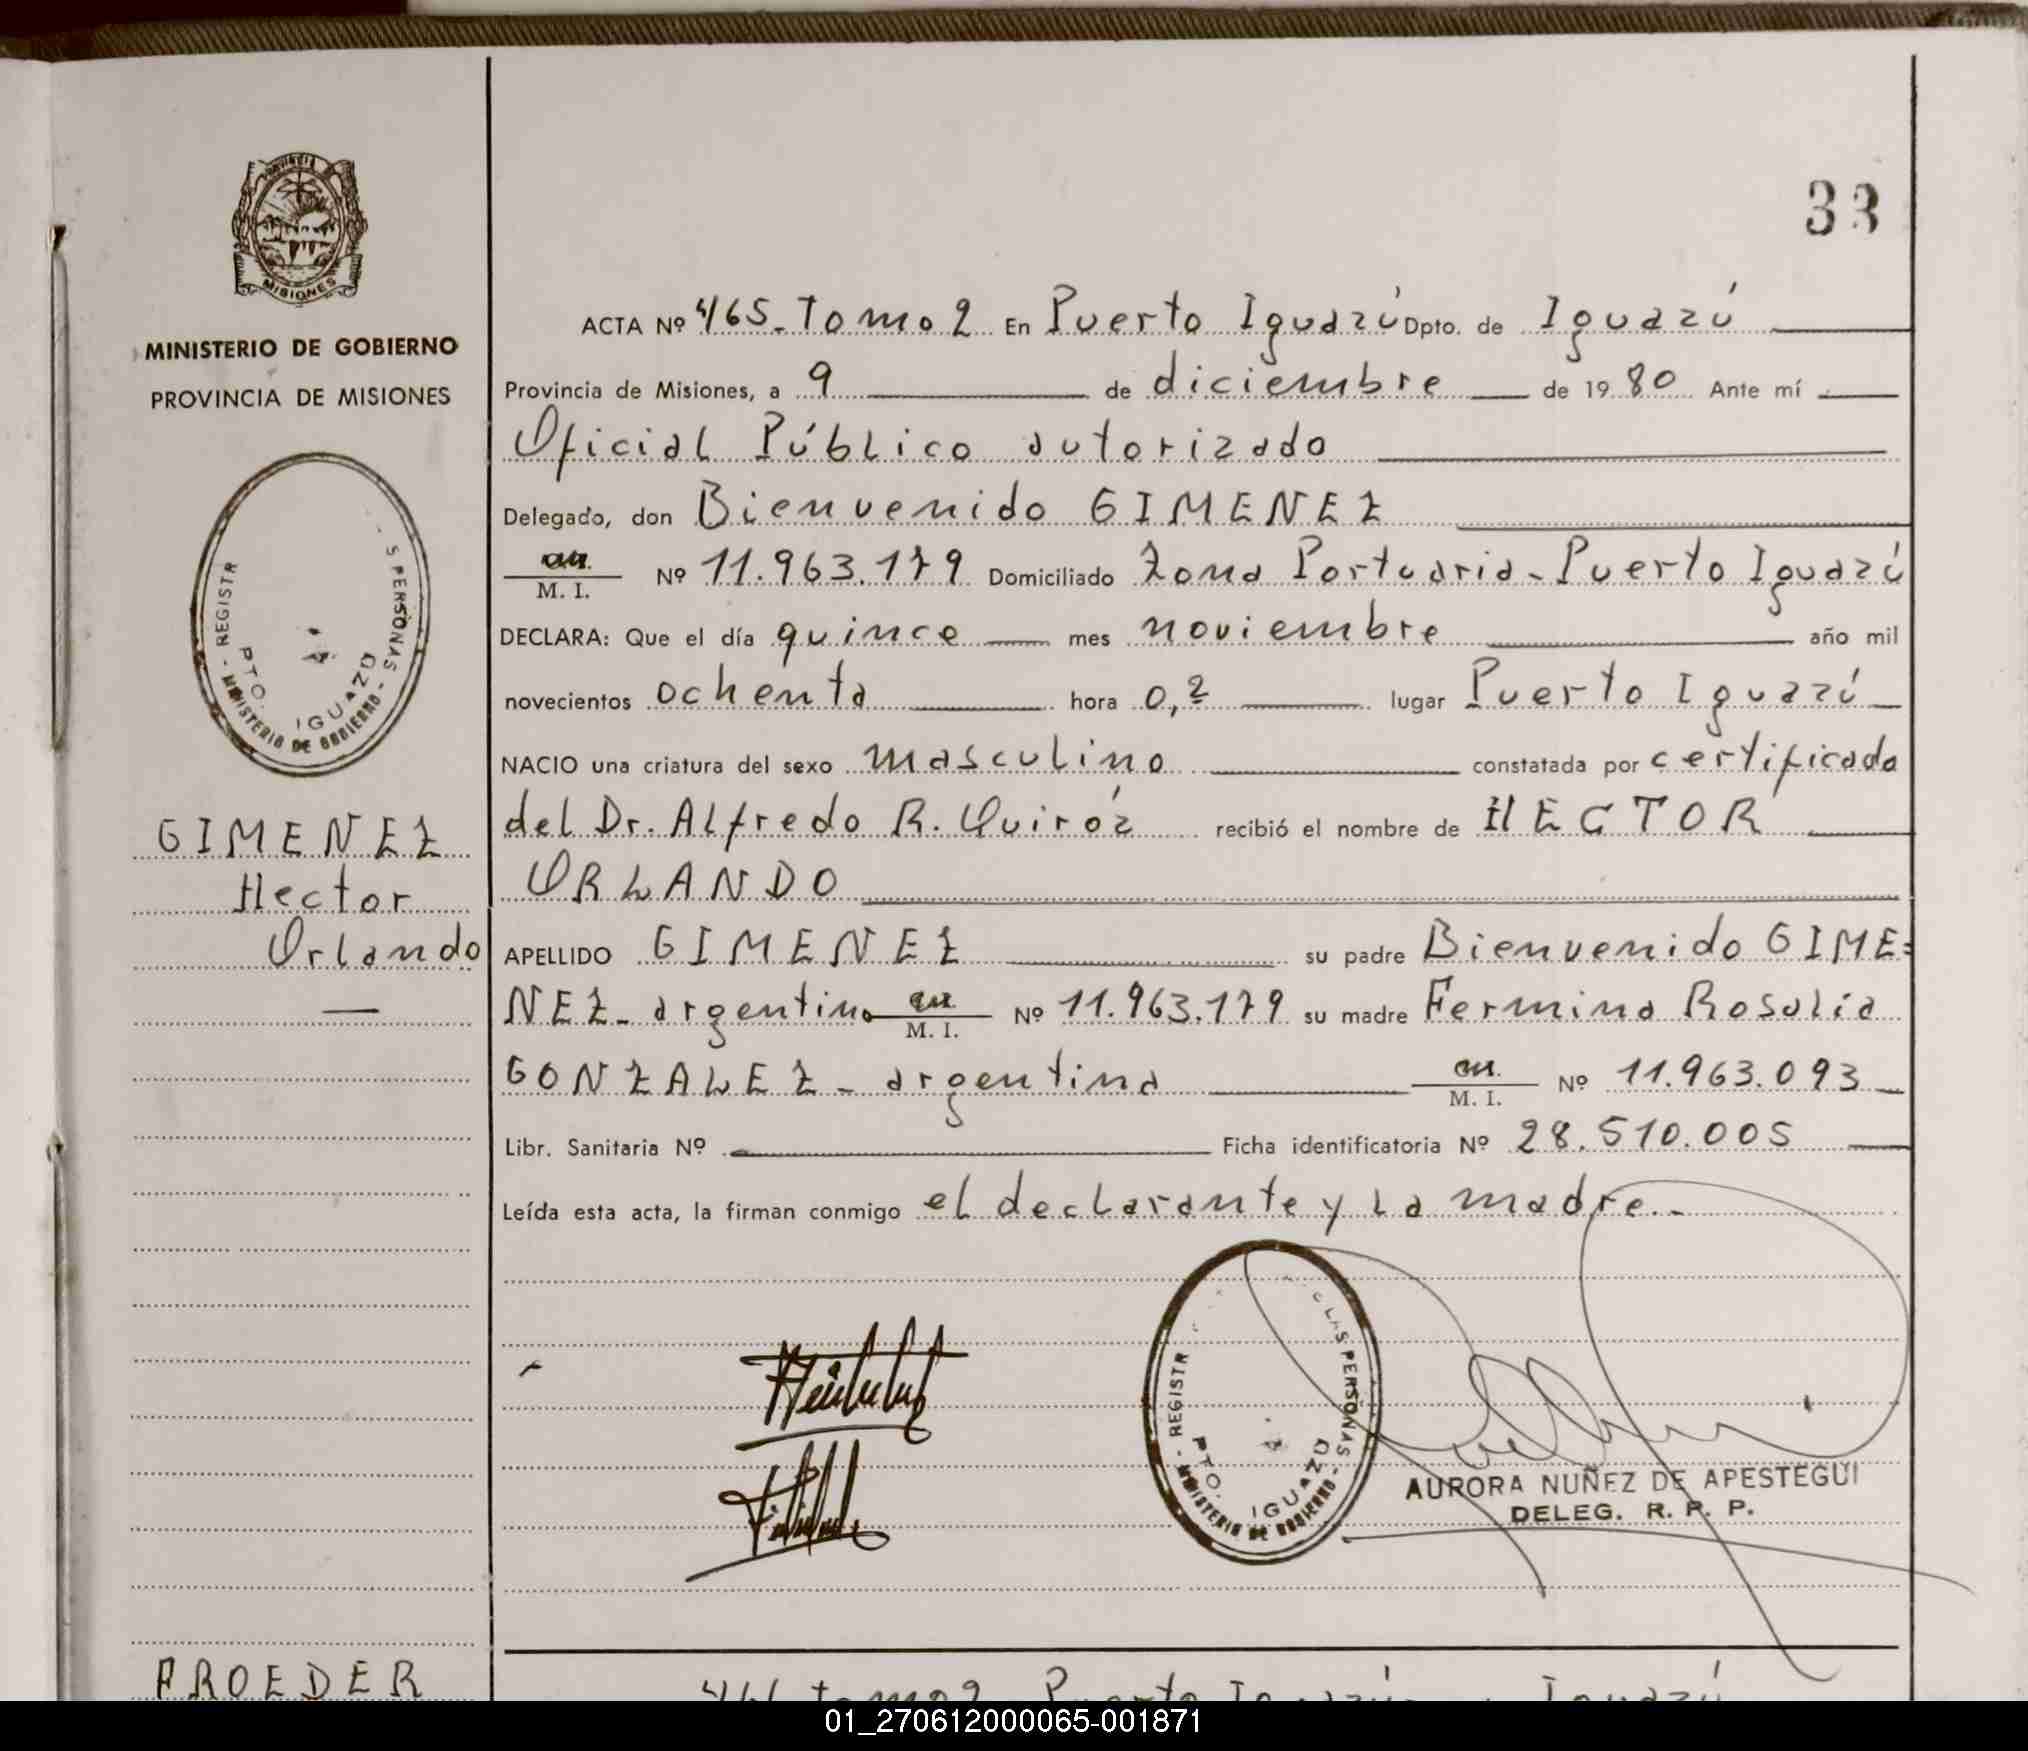 PROVINCIA
MISIONES
MINISTERIO DE GOBIERNO
PROVINCIA DE MISIONES
- REGISTR
S PERSONAS -
PTO. IGUAZU
MINISTERIO DE GOBIERNO
GIMENEZ
Hector
Orlando
—
33
ACTA Nº 465. Tomo 2 En Puerto Iguazú Dpto. de Iguazú
Provincia de Misiones, a 9 de diciembre de 1980 Ante mí
Oficial Público autorizado
Delegado, don Bienvenido GIMENEZ
M. I. Nº 11.963.179 Domiciliado Zona Portuaria - Puerto Iguazú
DECLARA: Que el día quince mes noviembre año mil
novecientos ochenta hora 0,2 lugar Puerto Iguazú
NACIO una criatura del sexo masculino constatada por certificado
del Dr. Alfredo R. Quiróz recibió el nombre de HECTOR
ORLANDO
APELLIDO GIMENEZ su padre Bienvenido GIME=
NEZ - argentino M. I. Nº 11.963.179 su madre Fermina Rosalia
GONZALEZ - argentina M. I. Nº 11.963.093
Libr. Sanitaria Nº Ficha identificatoria Nº 28.510.005
Leída esta acta, la firman conmigo el declarante y la madre.-
- REGISTR
LAS PERSONAS -
PTO. IGUAZU
MINISTERIO DE GOBIERNO
AURORA NUÑEZ DE APESTEGUI
DELEG. R. P. P.
PROEDER
466 tomo 2 Puerto Iguazú Iguazú
01_270612000065-001871